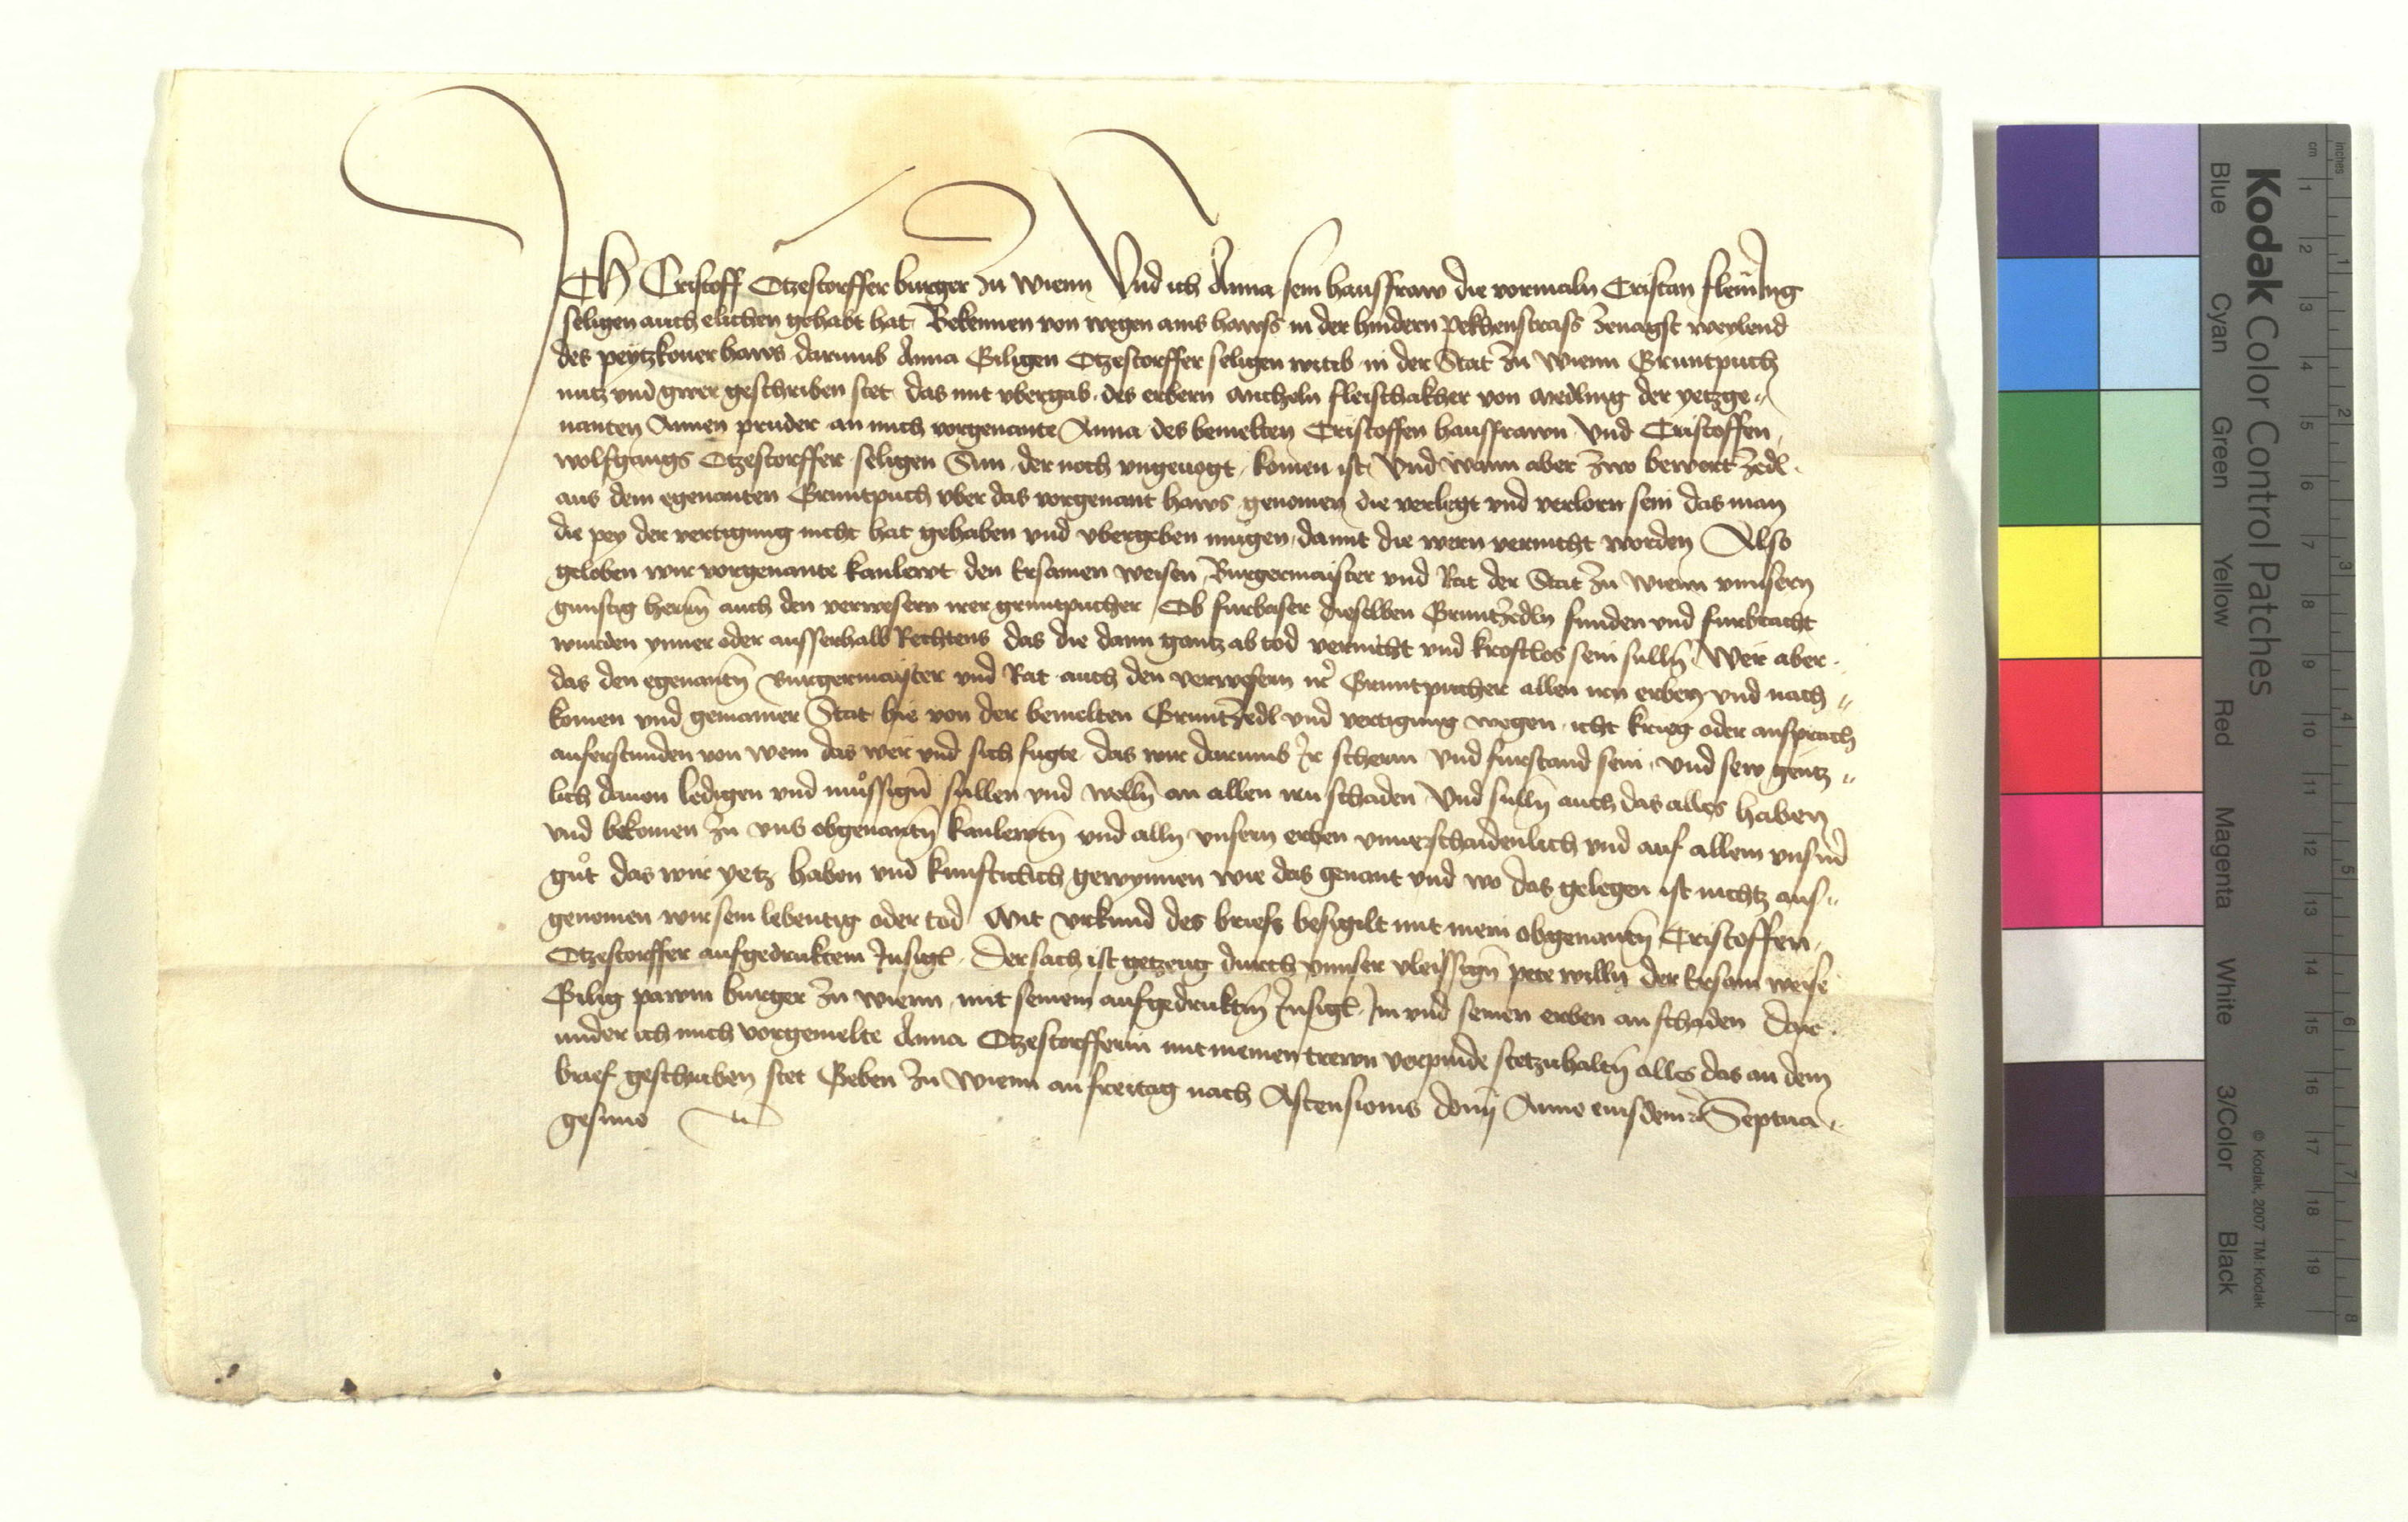 ICh Cristoff Otzestorffer burger zu wienn Und ich Anna sein hausfraw die vormaln Cristan fleming
seligen auch elichen gehabt hat Bekennen von wegen ains hawss in der hindern pekhenstrass zenagst weylend
des peytzkouer haws darumb Anna Giligen Otzestorffer seligen witib in der Stat zu wienn Gruntpuch
nutz vnd gwer geschriben stet das mit vbergab des erbern micheln fleischakher von medling der yetzge„
nanten Annen pruder an mich vorgenante Anna des bemelten Cristoffen hausfrawn Und Cristoffen
wolfgangs Otzestorffer seligen Sun der noch vngeuogt komen ist Und wann aber zwo bewart zedl
aus dem egenanten Gruntpuch vber das vorgenant haws genomen die verlegt vnd verlorn sein das man
die pey der vertigung nicht hat gehaben vnd vbergeben mugen damit die wern vernicht worden Also
geloben wir vorgenante kanlewt den Ersamen weisen Burgermaister vnd Rat der Stat zu wienn vnnsern
gunstig herrn auch den verwesern irer gruntpucher Ob furbaser dieselben Gruntzedln funden vnd furbracht
wurden ynner oder ausserhalb Rechtens das die dann gantz ab tod vernicht vnd kroftlos sein sulln Wer aber
das den egenantn Burgermaister vnd Rat auch den verwesern ir Gruntpucher allen irn erben vnd nach„
komen vnd gemainer Stat hie von der bemelten Gruntzedl vnd vertigung wegen icht krieg oder ansprach
auferstunden von wem das wer vnd sich fugte das wir darumb Ir scherm Vnd furstand sein Vnd sew gentz„
lich dauon ledigen vnd můssign sullen vnd welln an allen irn schaden Und sulln auch das alles haben
vnd bekomen zu vns obgenantn kanlewtn vnd alln vnsern erben vnuerschaidenlich vnd auf allem vnserm
gůt das wir yetz haben vnd kunfticlich gewynnen wie das genant vnd wo das gelegen ist nichtz aus„
genomen wir sein lebentig oder tod Mit vrkund des briefs besigilt mit mein obgenantn Cristoffen
Otzestorffer aufgedruktem Insigl Der sach ist getzeug durch vnnser vleissign pete willn der Ersam weise
Gilig pawm burger zu wienn mit seinem aufgedruktm Insigl Im vnd seinen erben an schaden Dar
under ich mich vorgemelte Anna Otzestorfferin mit meinen trewn verpinde stetzuhaltn alles das an dem
brief geschriben stet Geben zu Wienn an freitag nach Ascensionis domi Anno eiusdem etc Septua„
gesimo
Kodak Color Control Patches
Blue Cyan Green Yellow Red Magenta White 3/Color Black
© Kodak, 2007 TM: Kodak
cm 1 2 3 4 5 6 7 8 9 10 11 12 13 14 15 16 17 18 19
inches 1 2 3 4 5 6 7 8